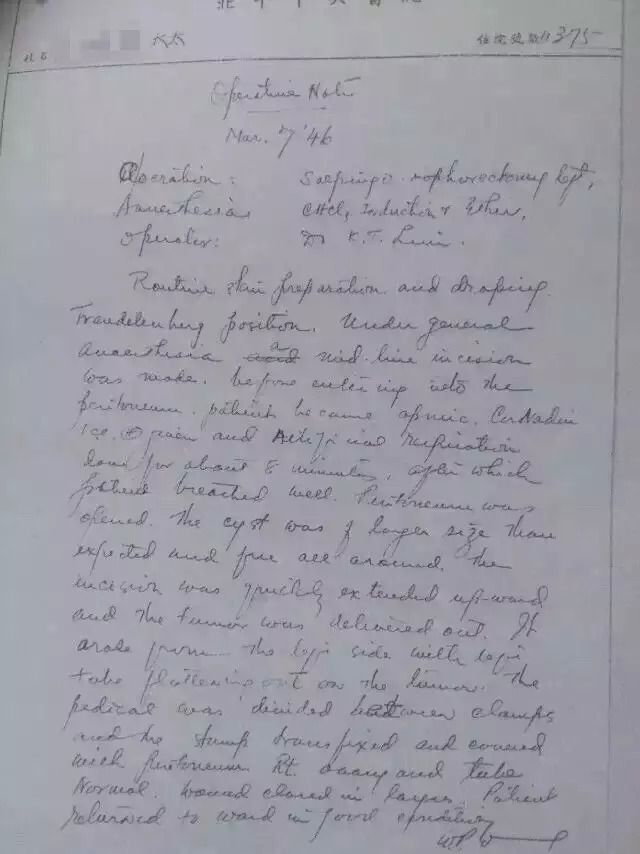 太太 住院號數 11375
Operative Note
Mar. 7 '46
Operation: Salpingo-oophorectomy left,
Anaesthesia CHCl3 Induction & Ether.
Operator: Dr K.T. Lim.
Routine skin preparation and draping.
Trendelenberg position. Under general
anaesthesia a mid-line incision
was made. before entering into the
peritoneum. patient became apneic.
1cc. given and Artificial respiration
done for about 8 minutes, after which
patient breathed well. Peritoneum was
opened. The cyst was of larger size than
expected and free all around. The
incision was quickly extended upward
and the tumor was delivered out. It
arose from the left side with left
tube flattening out on the tumor. The
pedical was divided between clamps
and the stump transfixed and covered
with peritoneum. Rt. ovary and tube
Normal. Wound closed in layers. Patient
returned to ward in good condition